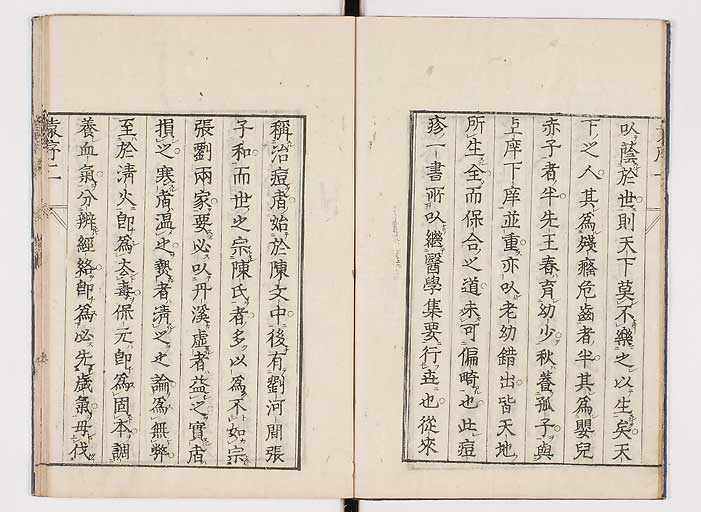 以蔭於世則天下莫不樂之以生矣天
下之人其為殘癈危齒者半其為嬰兒
赤子者半先王春育幼少秋養孤子與
上庠下庠並重亦以老幼錯出皆天地
所生全而保合之道未可偏畸也此痘
疹一書所以繼醫學集要行世也從來
稱治痘者始於陳文中後有劉河間張
子和而世之宗陳氏者多以為不如宗
張劉兩家要必以丹溪虛者益之實者
損之寒者溫之熱者清之之論為無弊
至於清火即為去毒保元即為固本調
養血氣分辨經絡即為必先歲氣毋伐
袁序二